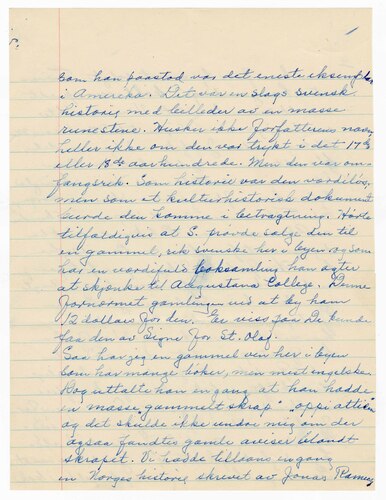 som han paastod var det eneste eksemplar
i Amerika. Det var en slags svensk
historie med billeder av en masse
runestene. Husker ikke forfatterens navn,
heller ikke om den var trykt i det 17de
eller 18de aarhundrede. Men den var om-
fangsrik. Som historie var den værdiløs,
men som et kulturhistorisk dokument
burde den komme i betragtning. Hørte
tilfældigvis at S. prøvde sælge den til
en gammel, rik svenske her i byen og som
har en værdifuld boksamling han agter
at skjenke til Augustana College. Denne
fornærmet gamlingen ved at by ham
12 dollars for den. Er viss paa De kunde
faa den av Signe for St. Olaf.
Saa har jeg en gammel ven her i byen
som har mange bøker, men mest engelske.
Dog uttalte han engang at han hadde
en masse "gammelt skrap" "oppe attic"
og det skulde ikke undre mig om der
ogsaa fandtes gamle aviser blandt
skrapet. Vi hadde tillaans engang
en Norges historie skrevet av Jonas Ramus